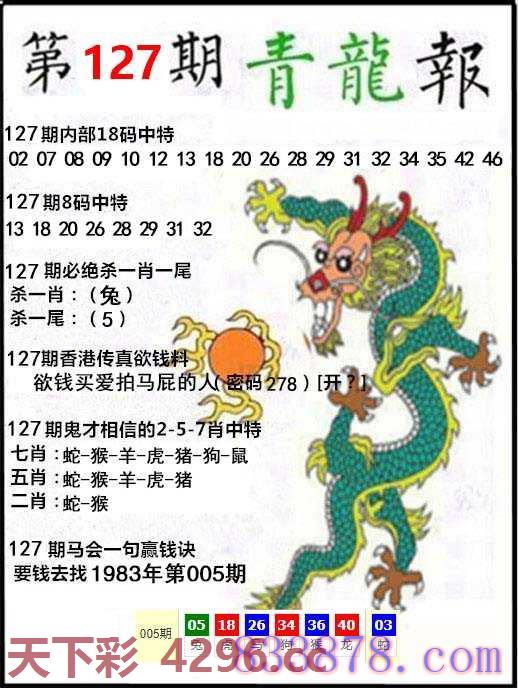 第127期青龍報
127期内部18码中特
02 07 08 09 10 12 13 18 20 26 28 29 31 32 34 35 42 46
127期8码中特
13 18 20 26 28 29 31 32
127期必绝杀一肖一尾
杀一肖：（兔）
杀一尾：（5）
127期香港传真欲钱料
欲钱买爱拍马屁的人(密码278)[开？]
127期鬼才相信的2-5-7肖中特
七肖：蛇-猴-羊-虎-猪-狗-鼠
五肖：蛇-猴-羊-虎-猪
二肖：蛇-猴
127期马会一句赢钱诀
要钱去找1983年第005期
005期 05 18 26 34 36 40 03
兔 虎 马 狗 猴 龙 蛇
天下彩 4296.cc
838878.com